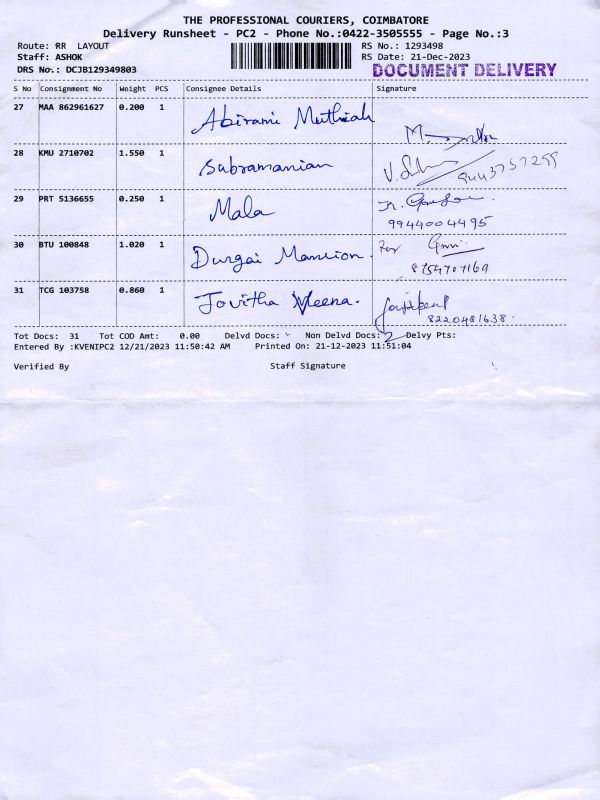 THE PROFESSIONAL COURIERS, COIMBATORE
Delivery Runsheet - PC2 - Phone No.:0422-3505555 - Page No.:3
Route: RR LAYOUT RS No.: 1293498
Staff: ASHOK RS Date: 21-Dec-2023
DRS No.: DCJB129349803 DOCUMENT DELIVERY
S No Consignment No Weight PCS Consignee Details Signature
27 MAA 862961627 0.200 1 Abirami Muthiah
28 KMU 2710702 1.550 1 Subramanian
9443757255
29 PRT 5136655 0.250 1 Mala
9944004495
30 BTU 100848 1.020 1 Durgai Mansion.
8754707169
31 TCG 103758 0.860 1 Jovitha Meena.
8220481638.
Tot Docs: 31 Tot COD Amt: 0.00 Delvd Docs: Non Delvd Docs: 2 Delvy Pts:
Entered By :KVENIPC2 12/21/2023 11:50:42 AM Printed On: 21-12-2023 11:51:04
Verified By Staff Signature